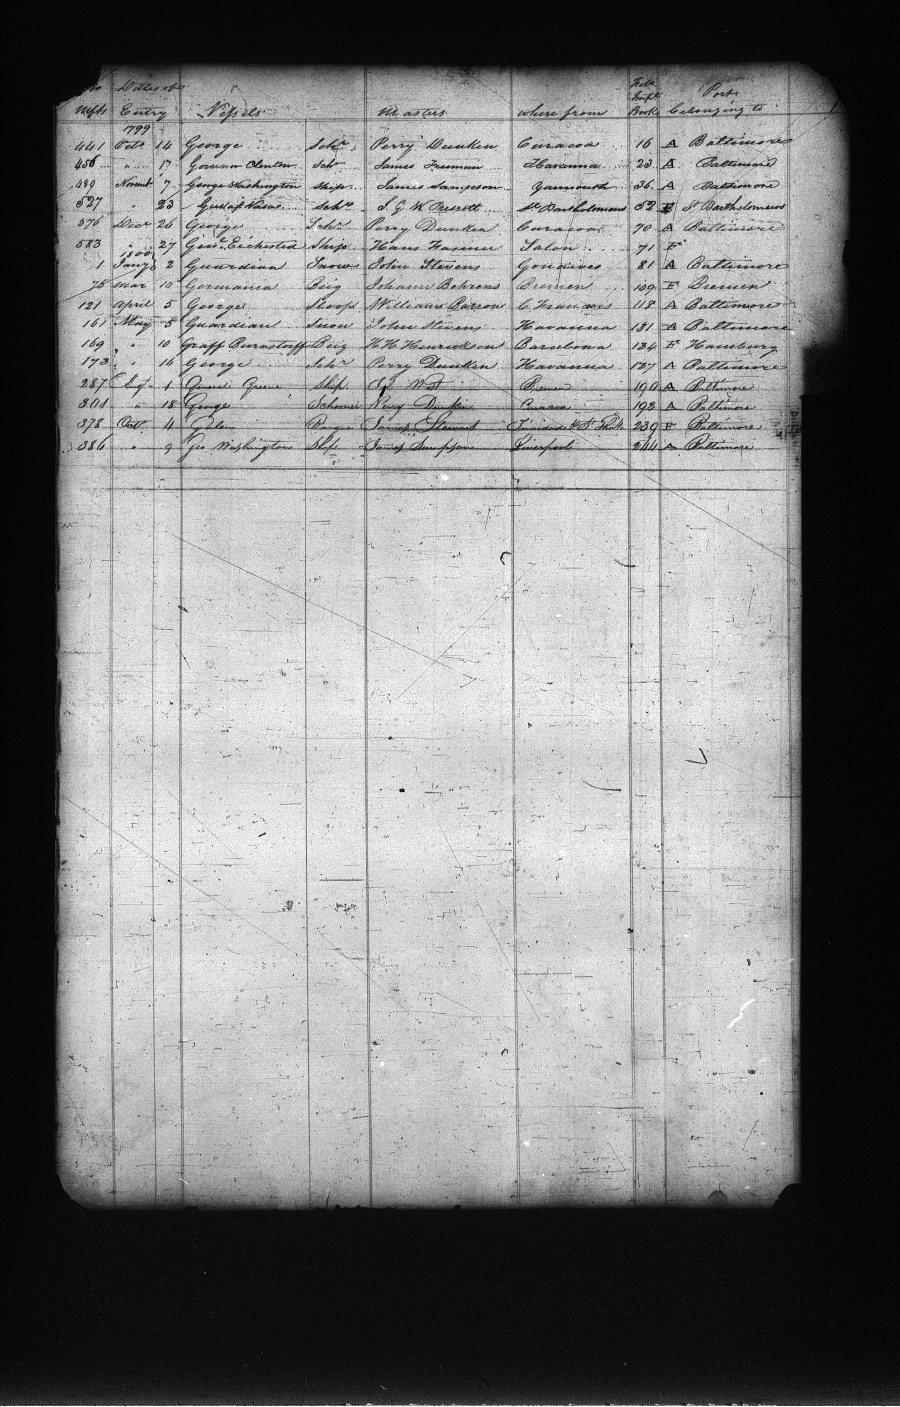 No Dates of Folo Port
Mfts Entry Vessels Masters where from Impt Book belonging to
1799
441 Octo 14 George Schr Perry Dunken Curacoa 16 A Baltimore
456 " 17 Govenor Clinton Sch James Freeman Havanna 23 A Baltimore
489 Novmt 7 George Washington Ship James Sampson Yarmouth 36 A Baltimore
527 " 23 Gustaf Vasae Schr J G W Prescott St Bartholomeus 52 F St Bartholomeus
576 Decr 26 George Schr Perry Dunken Curacoa 70 A Baltimore
583 " 27 Genl Eichested Ship Hans Hasmer 71 F
1800
1 Jany 2 Guardian Snow John Stevens Gonaives 81 A Baltimore
75 Mar 10 Germania Brig Johann Behrens Bremen 109 F Bremen
121 April 5 George Sloop William Barron C Francois 118 A Baltimore
161 May 5 Guardian Snow John Stevens Havanna 131 A Baltimore
169 " 10 Graff Bernstoff Brig H H Barcelona 134 F Hamburg
173 " 16 George Schr Perry Dunkin Havanna 137 A Baltimore
287 Augt 1 Ship West Bremen 190 A Baltimore
301 " 18 George Schooner Perry Dunkin Curacoa 193 A Baltimore
378 Oct 4 James Stewart 239 Baltimore
386 " 9 Geo Washington Ship James Sampson Liverpool 244 A Baltimore